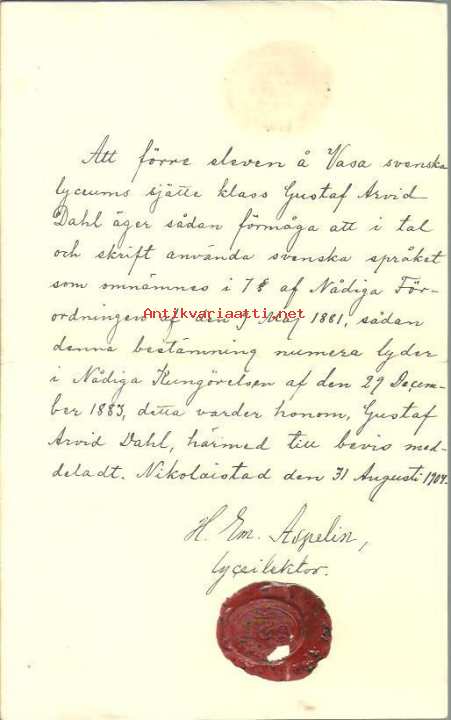 Att förre eleven å Vasa svenska
lyceums sjätte klass Gustaf Arvid
Dahl äger sådan förmåga att i tal
och skrift använda svenska språket
som omnämnes i 7 § af Nådiga För-
ordningen af den 9 Maj 1881, sådan
Antikvariaatti.net
denna bestämning numera lyder
i Nådiga Kungörelsen af den 29 Decem-
ber 1883, detta varder honom, Gustaf
Arvid Dahl, härmed till bevis med-
deladt. Nikolaistad den 31 Augusti 1904.
H. Em. Aspelin,
lyceilektor.